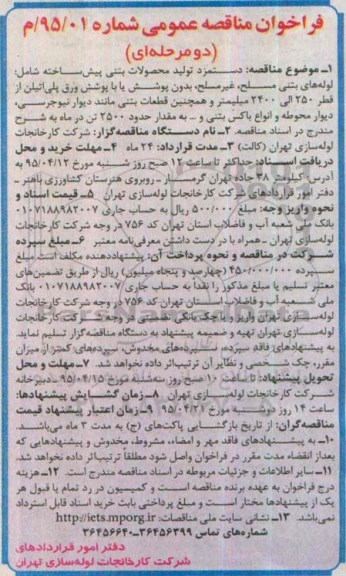 فراخوان مناقصه عمومی شماره ۹۵/۰۱/م
(دو مرحله‌ای)
۱ـ موضوع مناقصه: دستمزد تولید محصولات بتنی پیش‌ساخته شامل:
لوله‌های بتنی مسلح، غیرمسلح، بدون پوشش یا با پوشش ورق پلی‌اتیلن از
قطر ۲۵۰ الی ۲۴۰۰ میلیمتر و همچنین قطعات بتنی مانند دیوار نیوجرسی،
دیوار محوطه و انواع باکس بتنی و ـ به مقدار حدود ۲۵۰۰ تن در ماه به شرح
مندرج در اسناد مناقصه. ۲ـ نام دستگاه مناقصه‌گزار: شرکت کارخانجات
لوله‌سازی تهران (کالت) ۳ـ مدت قرارداد: ۲۴ ماه ۴ـ مهلت خرید و محل
دریافت اسناد: حداکثر تا ساعت ۱۲ صبح روز شنبه مورخ ۹۵/۰۴/۱۲ به
آدرس: کیلومتر ۳۸ جاده تهران گرمسار ـ روبروی هنرستان کشاورزی باهنر ـ
دفتر امور قراردادهای شرکت کارخانجات لوله‌سازی تهران ۵ـ قیمت اسناد و
نحوه واریز وجه: مبلغ ۵۰۰/۰۰۰ ریال به حساب جاری ۰۱۰۷۱۸۸۹۸۲۰۰۷
بانک ملی شعبه آب و فاضلاب استان تهران کد ۷۵۶ در وجه شرکت کارخانجات
لوله‌سازی تهران ـ همراه با در دست داشتن معرفی‌نامه معتبر ۶ـ مبلغ سپرده
شرکت در مناقصه و نحوه پرداخت آن: پیشنهاددهنده مکلف است مبلغ
سپرده ۴۵۰/۰۰۰/۰۰۰ (چهارصد و پنجاه میلیون) ریال از طریق تضمین‌های
معتبر تسلیم یا مبلغ مذکور را نقداً به حساب جاری ۰۱۰۷۱۸۸۹۸۲۰۰۷ بانک
ملی شعبه آب و فاضلاب استان تهران کد ۷۵۶ در وجه شرکت کارخانجات
لوله‌سازی تهران واریز و یا چک بانکی تضمینی در وجه شرکت کارخانجات
لوله‌سازی تهران تهیه و ضمیمه پیشنهاد به دستگاه مناقصه‌گزار تسلیم نماید.
به پیشنهادهای فاقد سپرده، سپرده‌های مخدوش، سپرده‌های کمتر از میزان
مقرر، چک شخصی و نظایر آن ترتیب‌اثر داده نخواهد شد. ۷ـ مهلت و محل
تحویل پیشنهاد: تا ساعت ۱۰ صبح روز سه‌شنبه مورخ ۹۵/۰۴/۱۵ ـ دبیرخانه
شرکت کارخانجات لوله‌سازی تهران ۸ـ زمان گشایش پیشنهادها:
ساعت ۱۴ روز دوشنبه مورخ ۹۵/۰۴/۲۱ ۹ـ زمان اعتبار پیشنهاد قیمت
مناقصه‌گران: از تاریخ بازگشایی پاکت‌های (ج) به مدت ۳ ماه می‌باشد.
۱۰ـ به پیشنهادهای فاقد مهر و امضاء، مشروط، مخدوش و پیشنهادهایی که
بعداز انقضاء مدت مقرر در فراخوان واصل شود مطلقاً ترتیب‌اثر داده نخواهد شد.
۱۱ـ سایر اطلاعات و جزئیات مربوطه در اسناد مناقصه مندرج است. ۱۲ـ هزینه
درج فراخوان به عهده برنده مناقصه است و کمیسیون در رد تمام یا قبول هر
یک از پیشنهادها مختار است و مبلغ پرداختی بابت خرید اسناد قابل استرداد
نمی‌باشد. ۱۳ـ نشانی سایت ملی مناقصات: http://iets.mporg.ir
شماره‌های تماس ۳۶۴۵۶۳۹۹ـ۳۶۴۵۶۶۴۰
دفتر امور قراردادهای
شرکت کارخانجات لوله‌سازی تهران